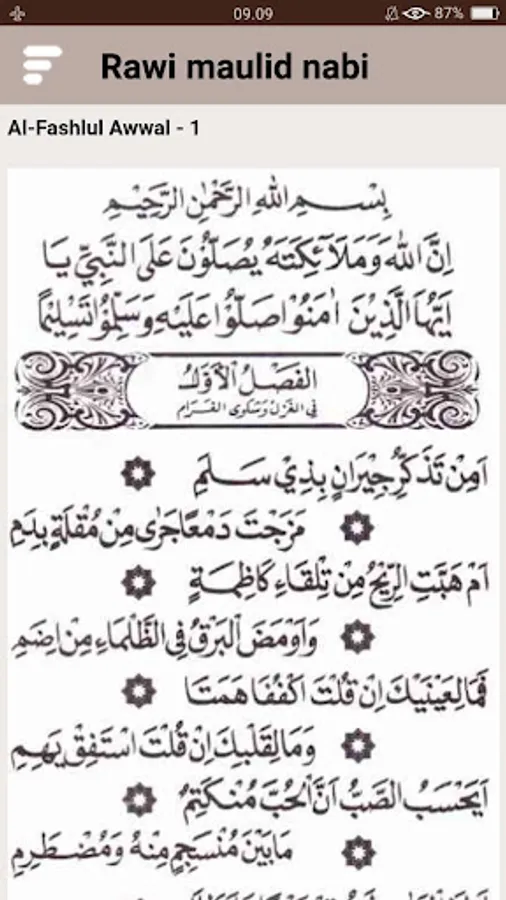 09.09
87%
Rawi maulid nabi
Al-Fashlul Awwal - 1
بِسْمِ اللهِ الرَّحْمٰنِ الرَّحِيْمِ
اِنَّ اللهَ وَمَلَآئِكَتَهُ يُصَلُّوْنَ عَلَى النَّبِيِّ يَا
اَيُّهَا الَّذِيْنَ اٰمَنُوْا صَلُّوْا عَلَيْهِ وَسَلِّمُوْا تَسْلِيْمًا
الفَصْلُ الْأَوَّلُ
فِي الغَزَلِ وَشَكْوَى الغَرَامِ
اَمِنْ تَذَكُّرِ جِيْرَانٍ بِذِيْ سَلَمِ
مَزَجْتَ دَمْعًا جَرٰى مِنْ مُقْلَةٍ بِدَمِ
اَمْ هَبَّتِ الرِّيْحُ مِنْ تِلْقَاءِ كَاظِمَةٍ
وَاَوْمَضَ الْبَرْقُ فِي الظَّلْمَاءِ مِنْ اِضَمِ
فَمَا لِعَيْنَيْكَ اِنْ قُلْتَ اكْفُفَا هَمَتَا
وَمَا لِقَلْبِكَ اِنْ قُلْتَ اسْتَفِقْ يَهِمِ
اَيَحْسَبُ الصَّبُّ اَنَّ الْحُبَّ مُنْكَتِمٌ
مَا بَيْنَ مُنْسَجِمٍ مِنْهُ وَمُضْطَرِمِ